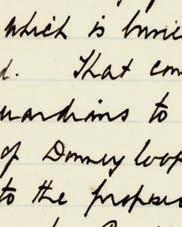 which is
d. That con
uardians to
of Downey loop
to the propose